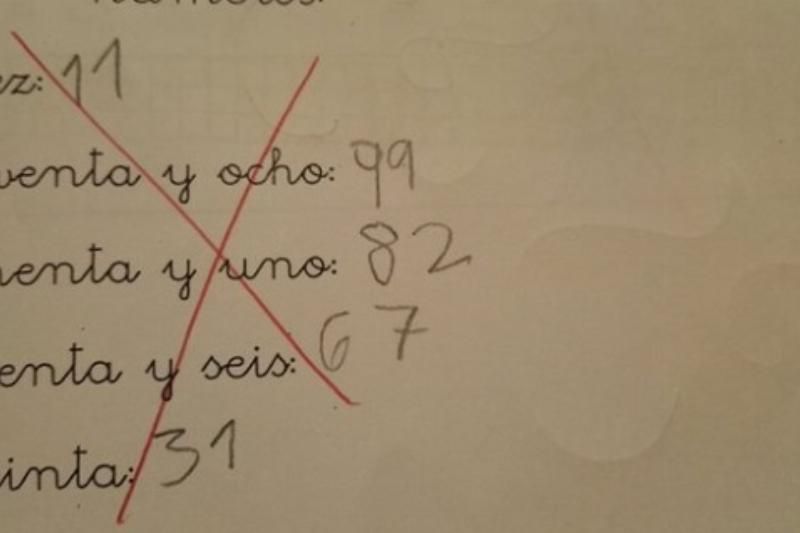 números.
ez: 11
venta y ocho: 99
enta y uno: 82
enta y seis: 67
inta: 31